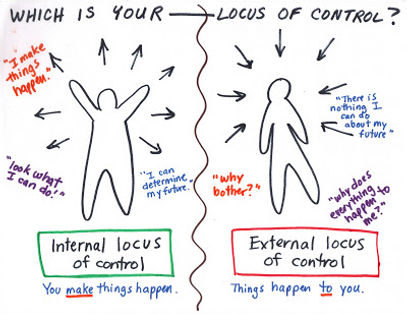 WHICH IS YOUR — LOCUS OF CONTROL?
"I make
things
happen."
"look what
I can do!"
"I can
determine
my future."
Internal locus
of control
You make things happen.
"There is
nothing I
can do
about my
future"
"why
bother?"
"why does
everything
happen to
me?"
External locus
of control
Things happen to you.